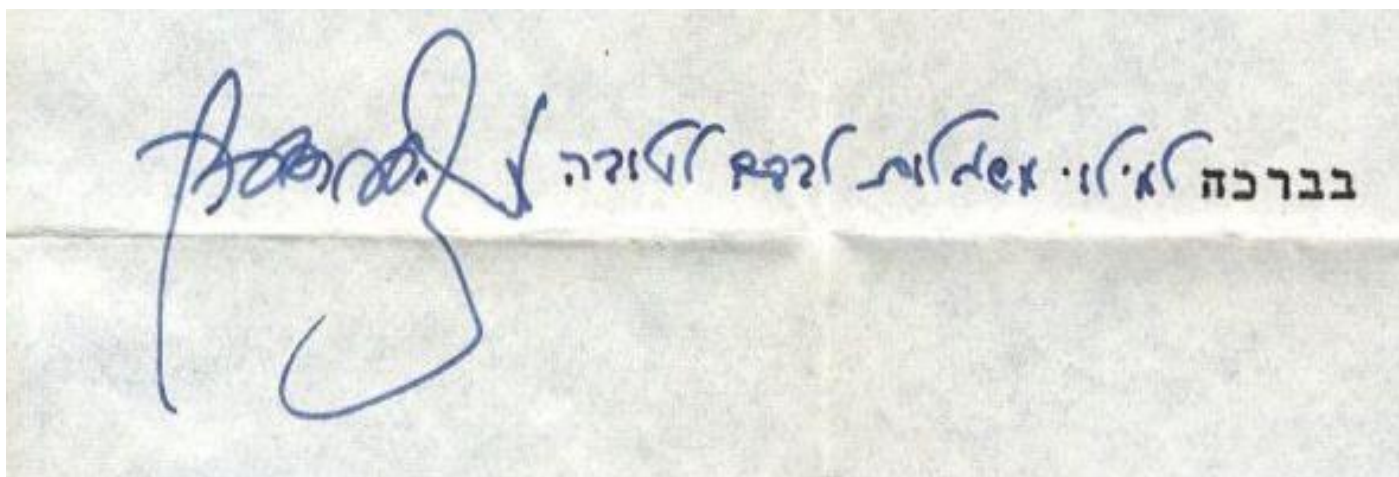 בברכה למילוי משאלות לבבם לטובה